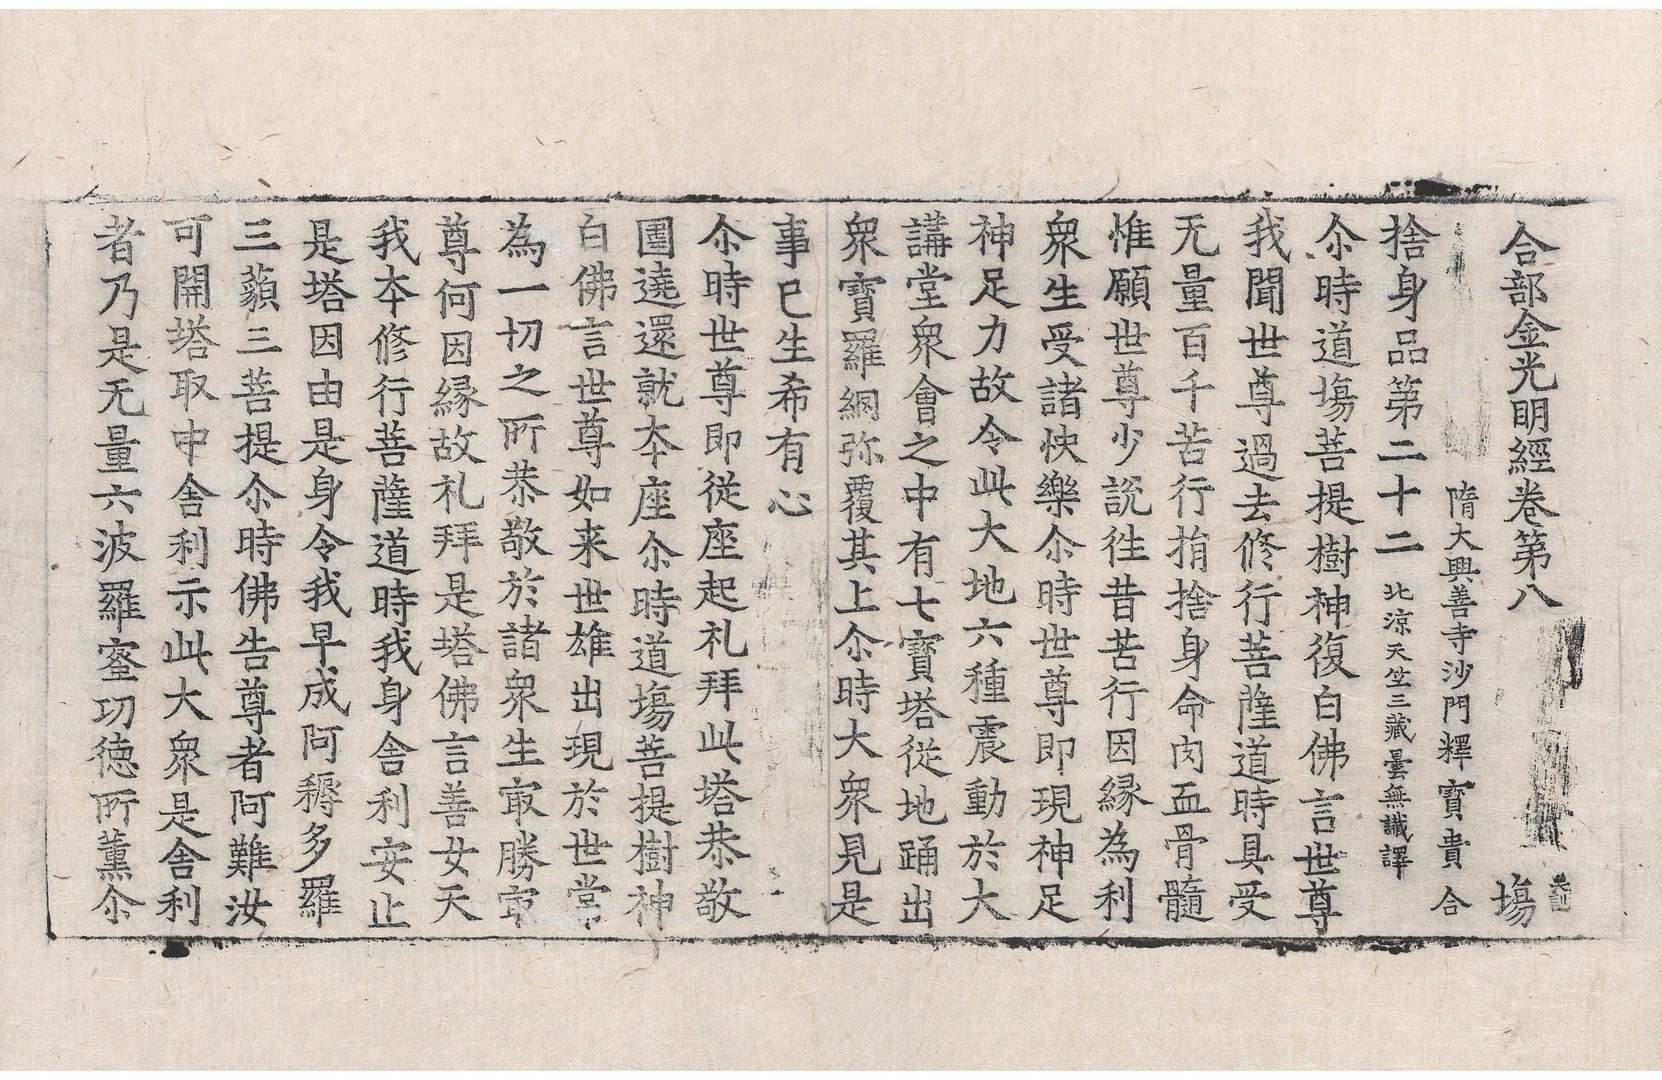 合部金光明經卷第八　場
隋大興善寺沙門釋寶貴合
捨身品第二十二　北涼天竺三藏曇無讖譯
尒時道塲菩提樹神復白佛言世尊
我聞世尊過去修行菩薩道時具受
无量百千苦行捐捨身命肉血骨髓
惟願世尊少說徃昔苦行因緣為利
衆生受諸快樂尒時世尊即現神足
神足力故令此大地六種震動於大
講堂衆會之中有七寶塔從地踊出
衆寶羅網弥覆其上尒時大衆見是
事已生希有心
尒時世尊即従座起礼拜此塔恭敬
圍遶還就本座尒時道塲菩提樹神
白佛言世尊如来世雄出現於世常
為一切之所恭敬於諸衆生㝡勝㝡
尊何因緣故礼拜是塔佛言善女天
我本修行菩薩道時我身舍利安止
是塔因由是身令我早成阿耨多羅
三藐三菩提尒時佛告尊者阿難汝
可開塔取中舍利示此大衆是舍利
者乃是无量六波羅蜜功徳所薰尒